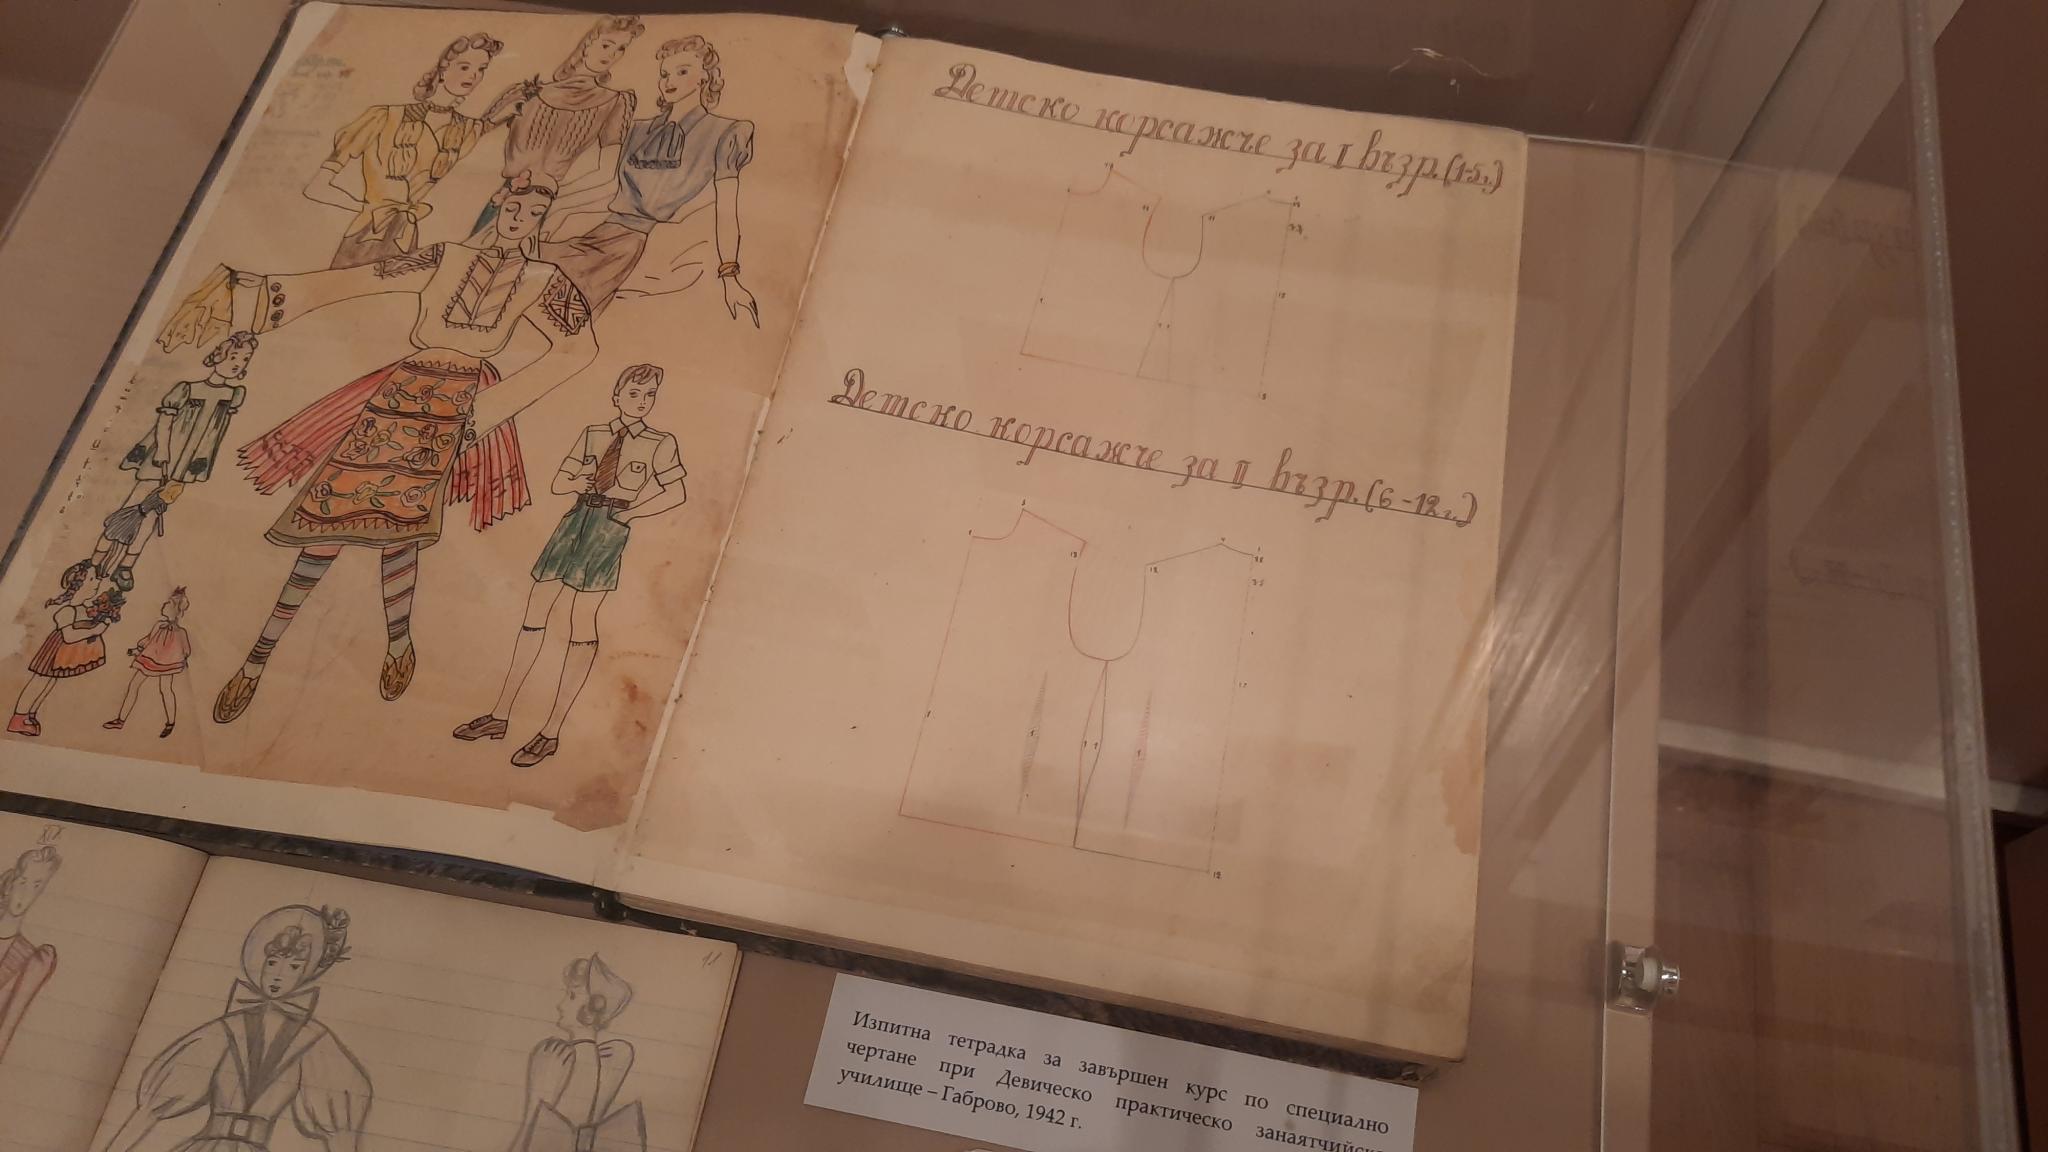 Детско корсажче за I възр. (1-5 г.)
Детско корсажче за II възр. (6-12 г.)
XIX
11
Изпитна тетрадка за завършен курс по специално
чертане при Девическо практическо
училище – Габрово, 1942 г.